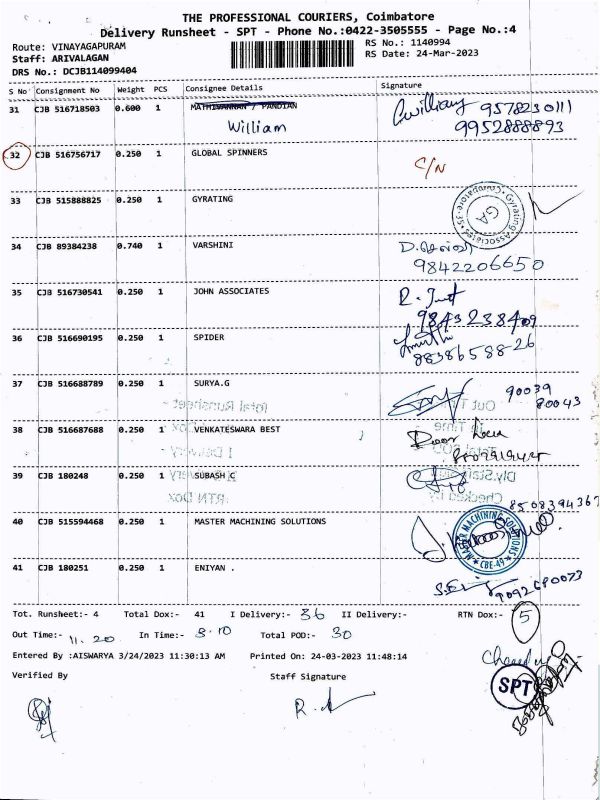 THE PROFESSIONAL COURIERS, Coimbatore
Delivery Runsheet - SPT - Phone No.:0422-3505555 - Page No.:4
Route: VINAYAGAPURAM RS No.: 1140994
Staff: ARIVALAGAN RS Date: 24-Mar-2023
DRS No.: DCJB114099404
S No Consignment No Weight PCS Consignee Details Signature
31 CJB 516718503 0.600 1 PANDIAN
William william 9578230111
9952888893
32 CJB 516756717 0.250 1 GLOBAL SPINNERS
C/N
33 CJB 515888825 0.250 1 GYRATING
Gyrating Associates Coimbatore-35
GA
34 CJB 89384238 0.740 1 VARSHINI
9842206650
35 CJB 516730541 0.250 1 JOHN ASSOCIATES
9843238409
36 CJB 516690195 0.250 1 SPIDER
8838658826
37 CJB 516688789 0.250 1 SURYA.G
90039
80043
38 CJB 516687688 0.250 1 VENKATESWARA BEST
Door Lock
39 CJB 180248 0.250 1 SUBASH C
8508394367
40 CJB 515594468 0.250 1 MASTER MACHINING SOLUTIONS
MASTER MACHINING SOLUTIONS
CBE-49
41 CJB 180251 0.250 1 ENIYAN .
9092680073
Tot. Runsheet:- 4 Total Dox:- 41 I Delivery:- 36 II Delivery:- RTN Dox:- 5
Out Time:- 11.20 In Time:- 3.10 Total POD:- 30
Entered By :AISWARYA 3/24/2023 11:30:13 AM Printed On: 24-03-2023 11:48:14
Verified By Staff Signature
SPT